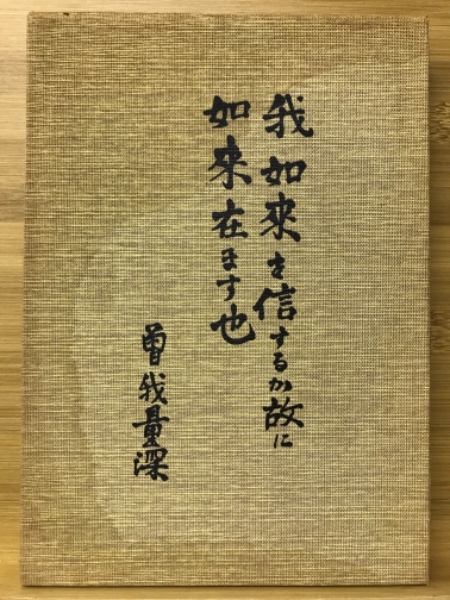 我如来を信するか故に
如来在ます也
曽我量深